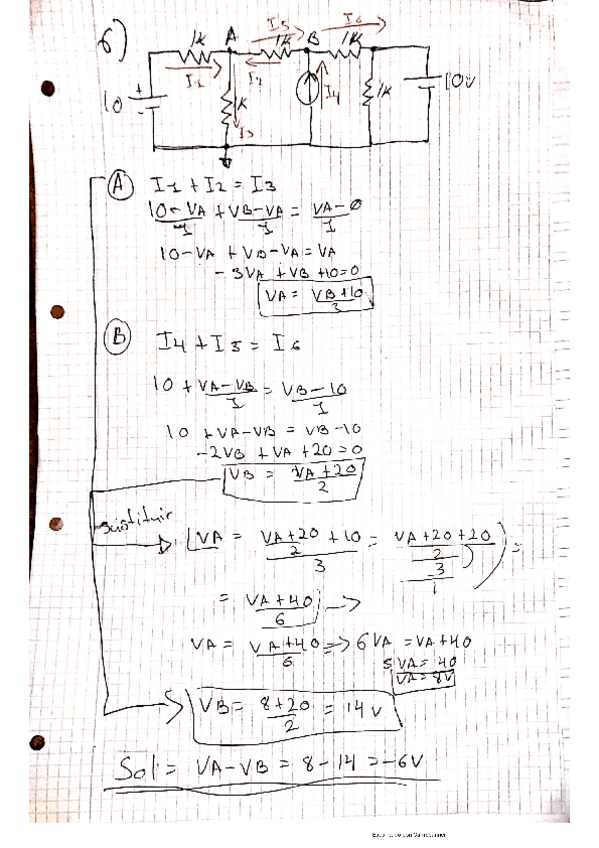 6)
1K A I5 1K B I6 1K
I1 I2 I4 1K 10V
10 + - 1K I3
A I1 + I2 = I3
10-VA/1 + VB-VA/1 = VA-0/1
10-VA + VB-VA = VA
-3VA + VB + 10 = 0
VA = VB+10/3
B I4 + I5 = I6
10 + VA-VB/1 = VB-10/1
10 + VA-VB = VB-10
-2VB + VA + 20 = 0
VB = VA+20/2
sustituir
VA = VA+20/2 + 10/3 = VA+20+20/2/3/1 =
= VA+40/6 →
VA = VA+40/6 => 6VA = VA+40
5VA = 40
VA = 8V
VB = 8+20/2 = 14V
Sol = VA-VB = 8-14 = -6V